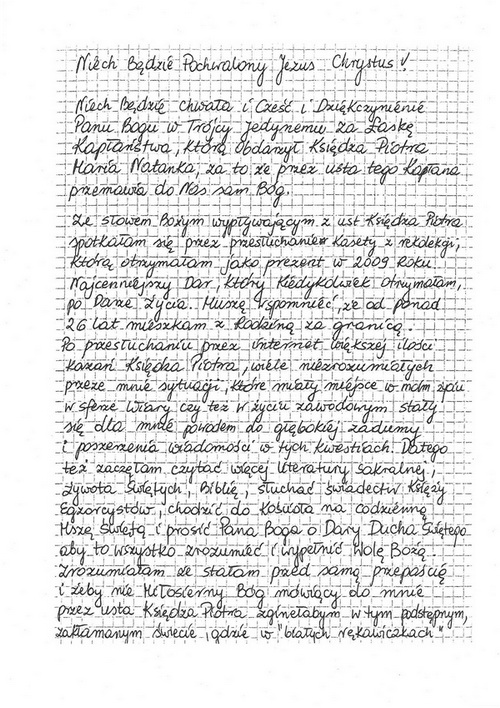 Niech Będzie Pochwalony Jezus Chrystus!
Niech Będzie chwała i Cześć i Dziękczynienie
Panu Bogu w Trójcy Jedynemu za Łaskę
Kapłaństwa, którą obdarzył Księdza Piotra
Maria Natanka, za to że przez usta tego Kapłana
przemawia do Nas sam Bóg.
Ze słowem Bożym wypływającym z ust Księdza Piotra
spotkałam się przez przesłuchanie kasety z rekolekcji,
którą otrzymałam jako prezent w 2009 roku.
Najcenniejszy Dar, który kiedykolwiek otrzymałam,
po Darze Życia. Muszę wspomnieć, że od ponad
26 lat mieszkam z Rodziną za granicą.
Po przesłuchaniu przez internet większej ilości
kazań Księdza Piotra, wiele niezrozumiałych
przeze mnie sytuacji, które miały miejsce w moim życiu
w sferze wiary czy też w życiu zawodowym stały
się dla mnie powodem do głębokiej zadumy
i poszerzenia wiadomości w tych kwestiach. Dlatego
też zaczęłam czytać więcej literatury sakralnej,
Żywota Świętych, Biblię, słuchać świadectw Księży
Egzorcystów, chodzić do Kościoła na codzienną
Mszę Świętą i prosić Pana Boga o Dary Ducha Świętego
aby to wszystko zrozumieć i wypełnić Wolę Bożą.
Zrozumiałam że stałam przed samą przepaścią
i żeby nie Miłosierny Bóg mówiący do mnie
przez usta Księdza Piotra zginęłabym w tym podstępnym,
zakłamanym świecie, gdzie w "białych rękawiczkach"